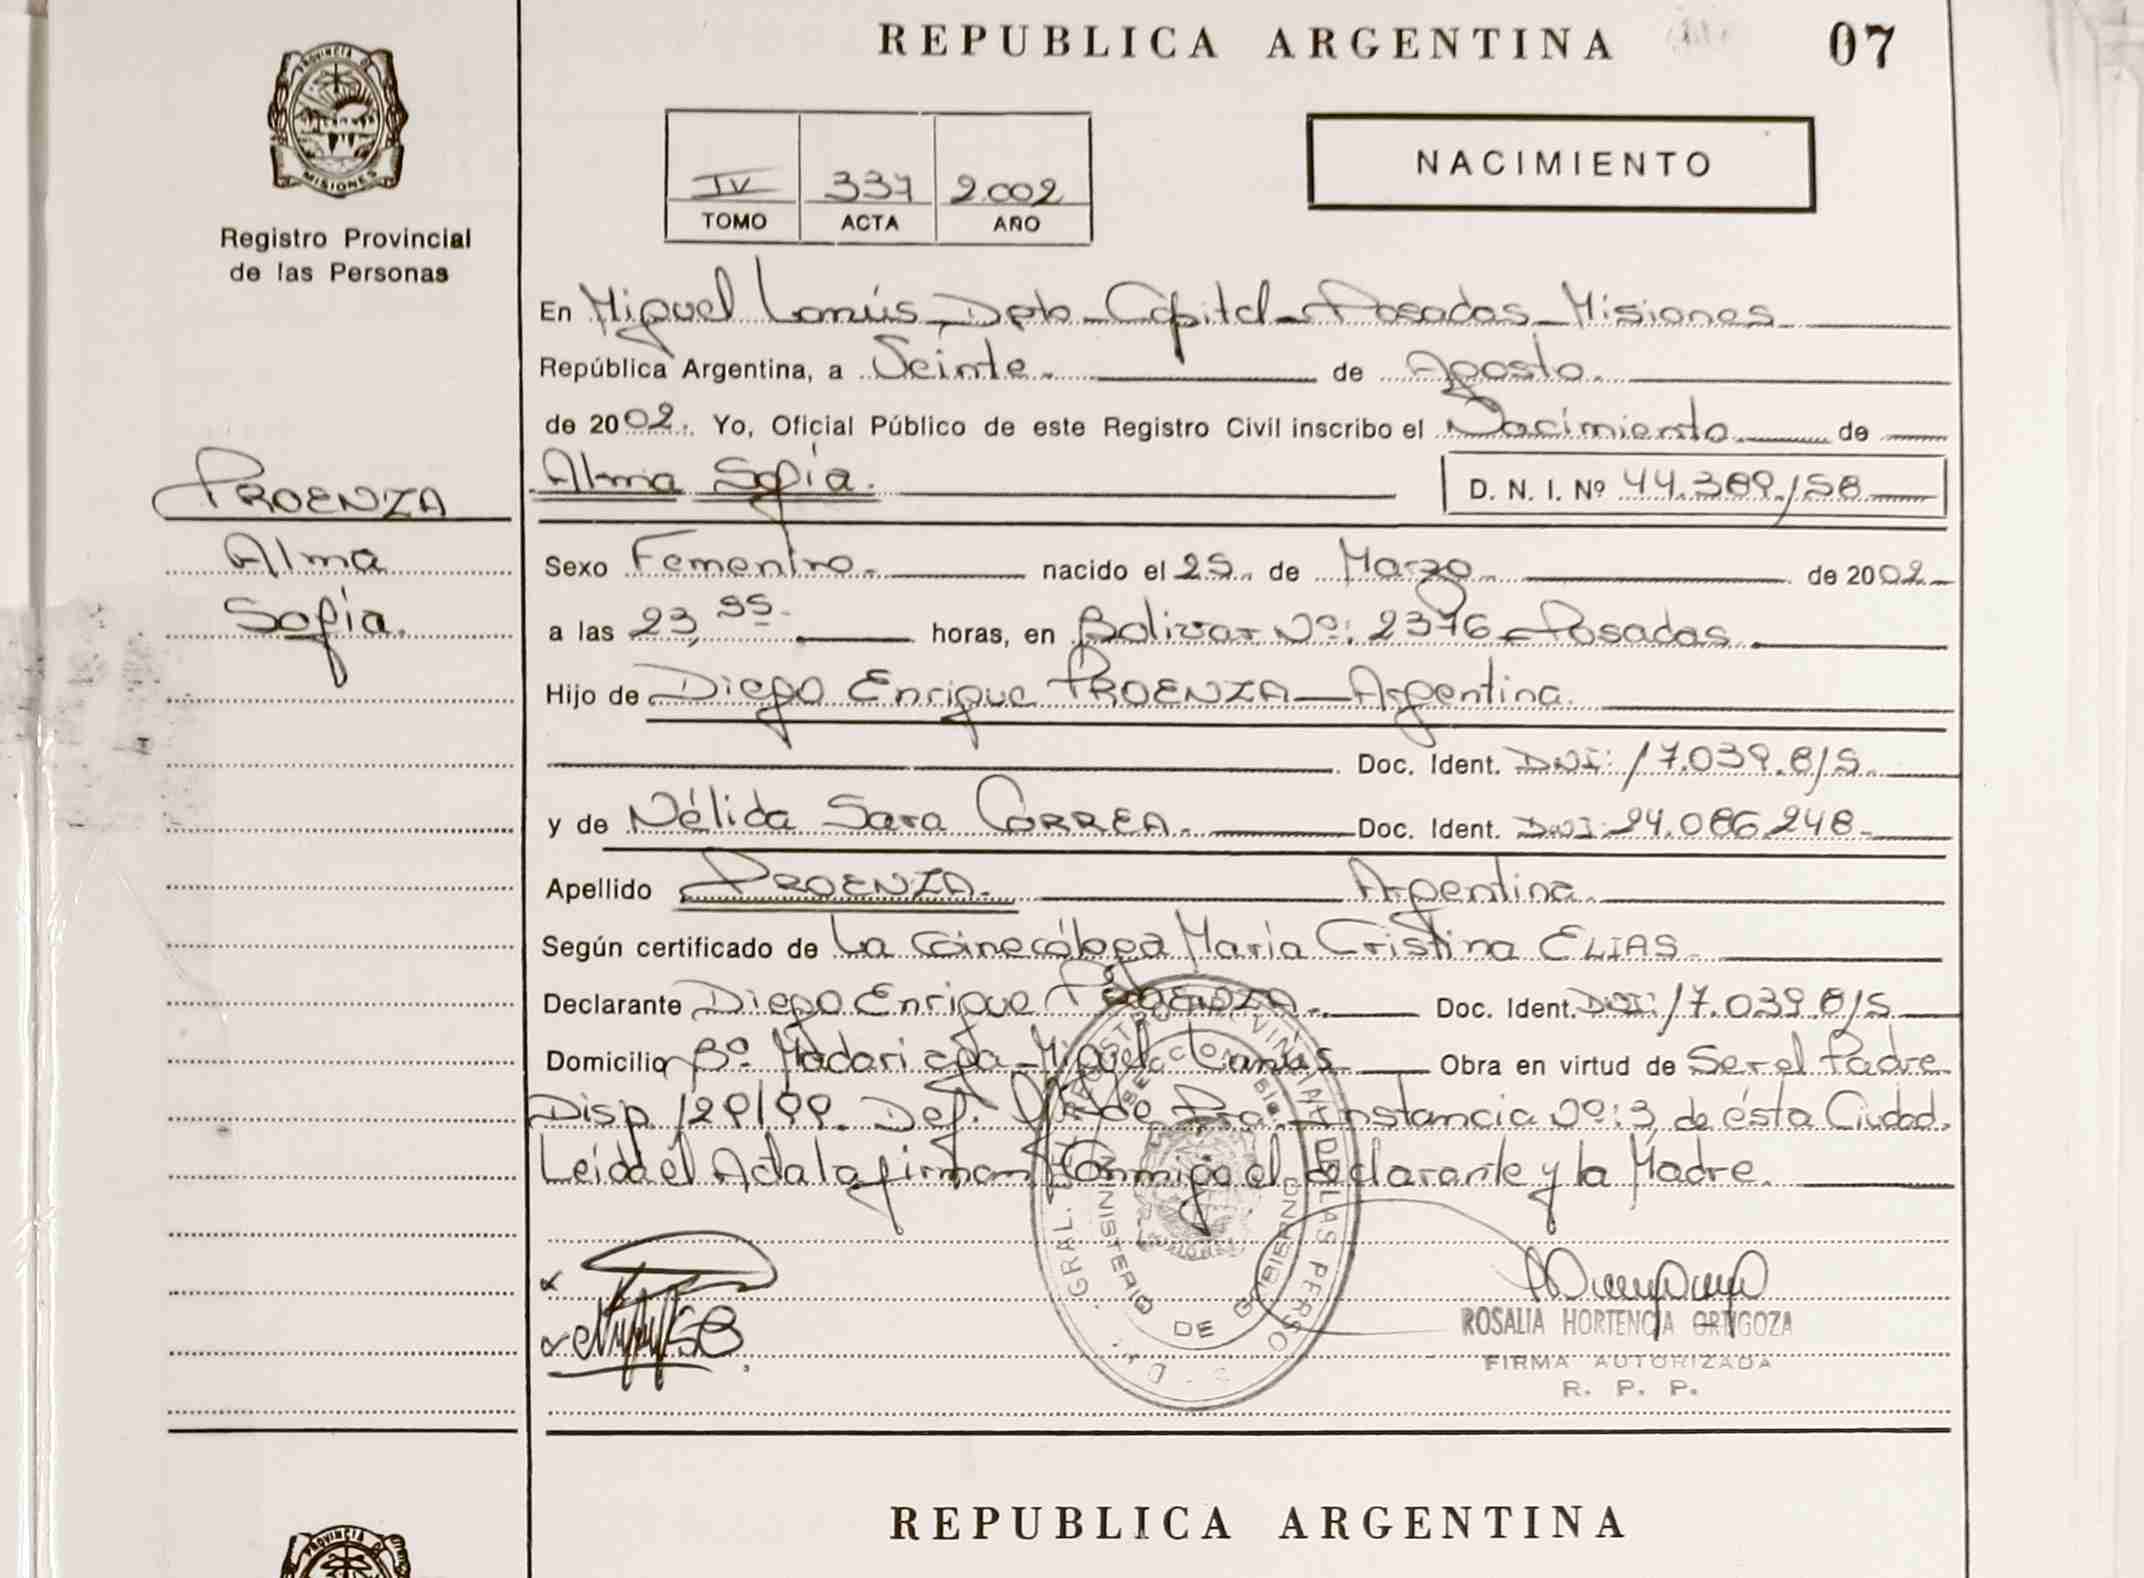 REPUBLICA ARGENTINA 07
PROVINCIA DE MISIONES
Registro Provincial
de las Personas
IV 337 2.002
TOMO ACTA AÑO
NACIMIENTO
En Miguel Lanús Dpto Capital Posadas Misiones
República Argentina, a Veinte de Agosto
de 2002. Yo, Oficial Público de este Registro Civil inscribo el Nacimiento de
PROENZA
Alma
Sofía.
Alma Sofía. D. N. I. Nº 44.389.158
Sexo Femenino nacido el 25 de Marzo de 2002
a las 23,55 horas, en Bolivar Nº: 2376 Posadas
Hijo de Diego Enrique PROENZA Argentina.
Doc. Ident. DNI: 17.039.815
y de Nélida Sara CORREA. Doc. Ident. DNI: 24.086.248
Apellido PROENZA. Argentina.
Según certificado de La Ginecóloga María Cristina ELIAS
Declarante Diego Enrique PROENZA Doc. Ident. DNI: 17.039.815
Domicilio Bº Madariaga Miguel Lanús Obra en virtud de Ser el Padre
Disp. 129/99. Def. de Instancia Nº: 3 de ésta Ciudad.
Leída el Acta la firman Conmigo el declarante y la Madre.
MINISTERIO DE GOBIERNO
ROSALIA HORTENCIA ORTIGOZA
FIRMA AUTORIZADA
R. P. P.
REPUBLICA ARGENTINA
PROVINCIA